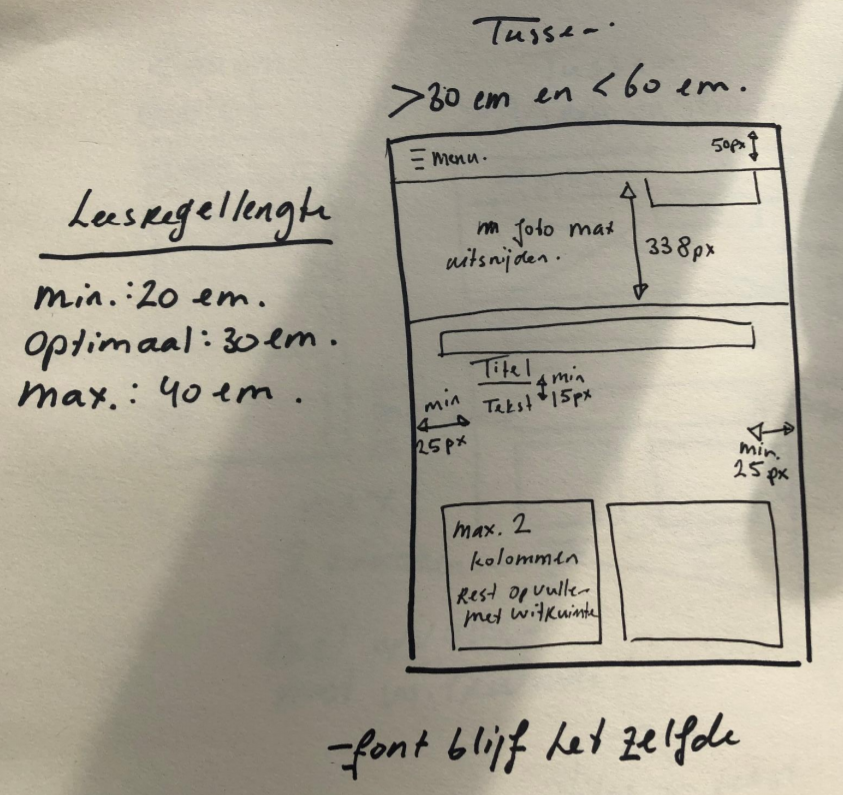 Tussen.
>30 em en <60 em.
☰ menu.
50px
Leesregellengte
min.: 20 em.
optimaal: 30 em.
max.: 40 em.
foto max
uitsnijden.
338px
Titel
Tekst
min
15px
min
25px
min.
25px
max. 2
kolommen
Rest opvullen
met witruimte
-font blijf het zelfde